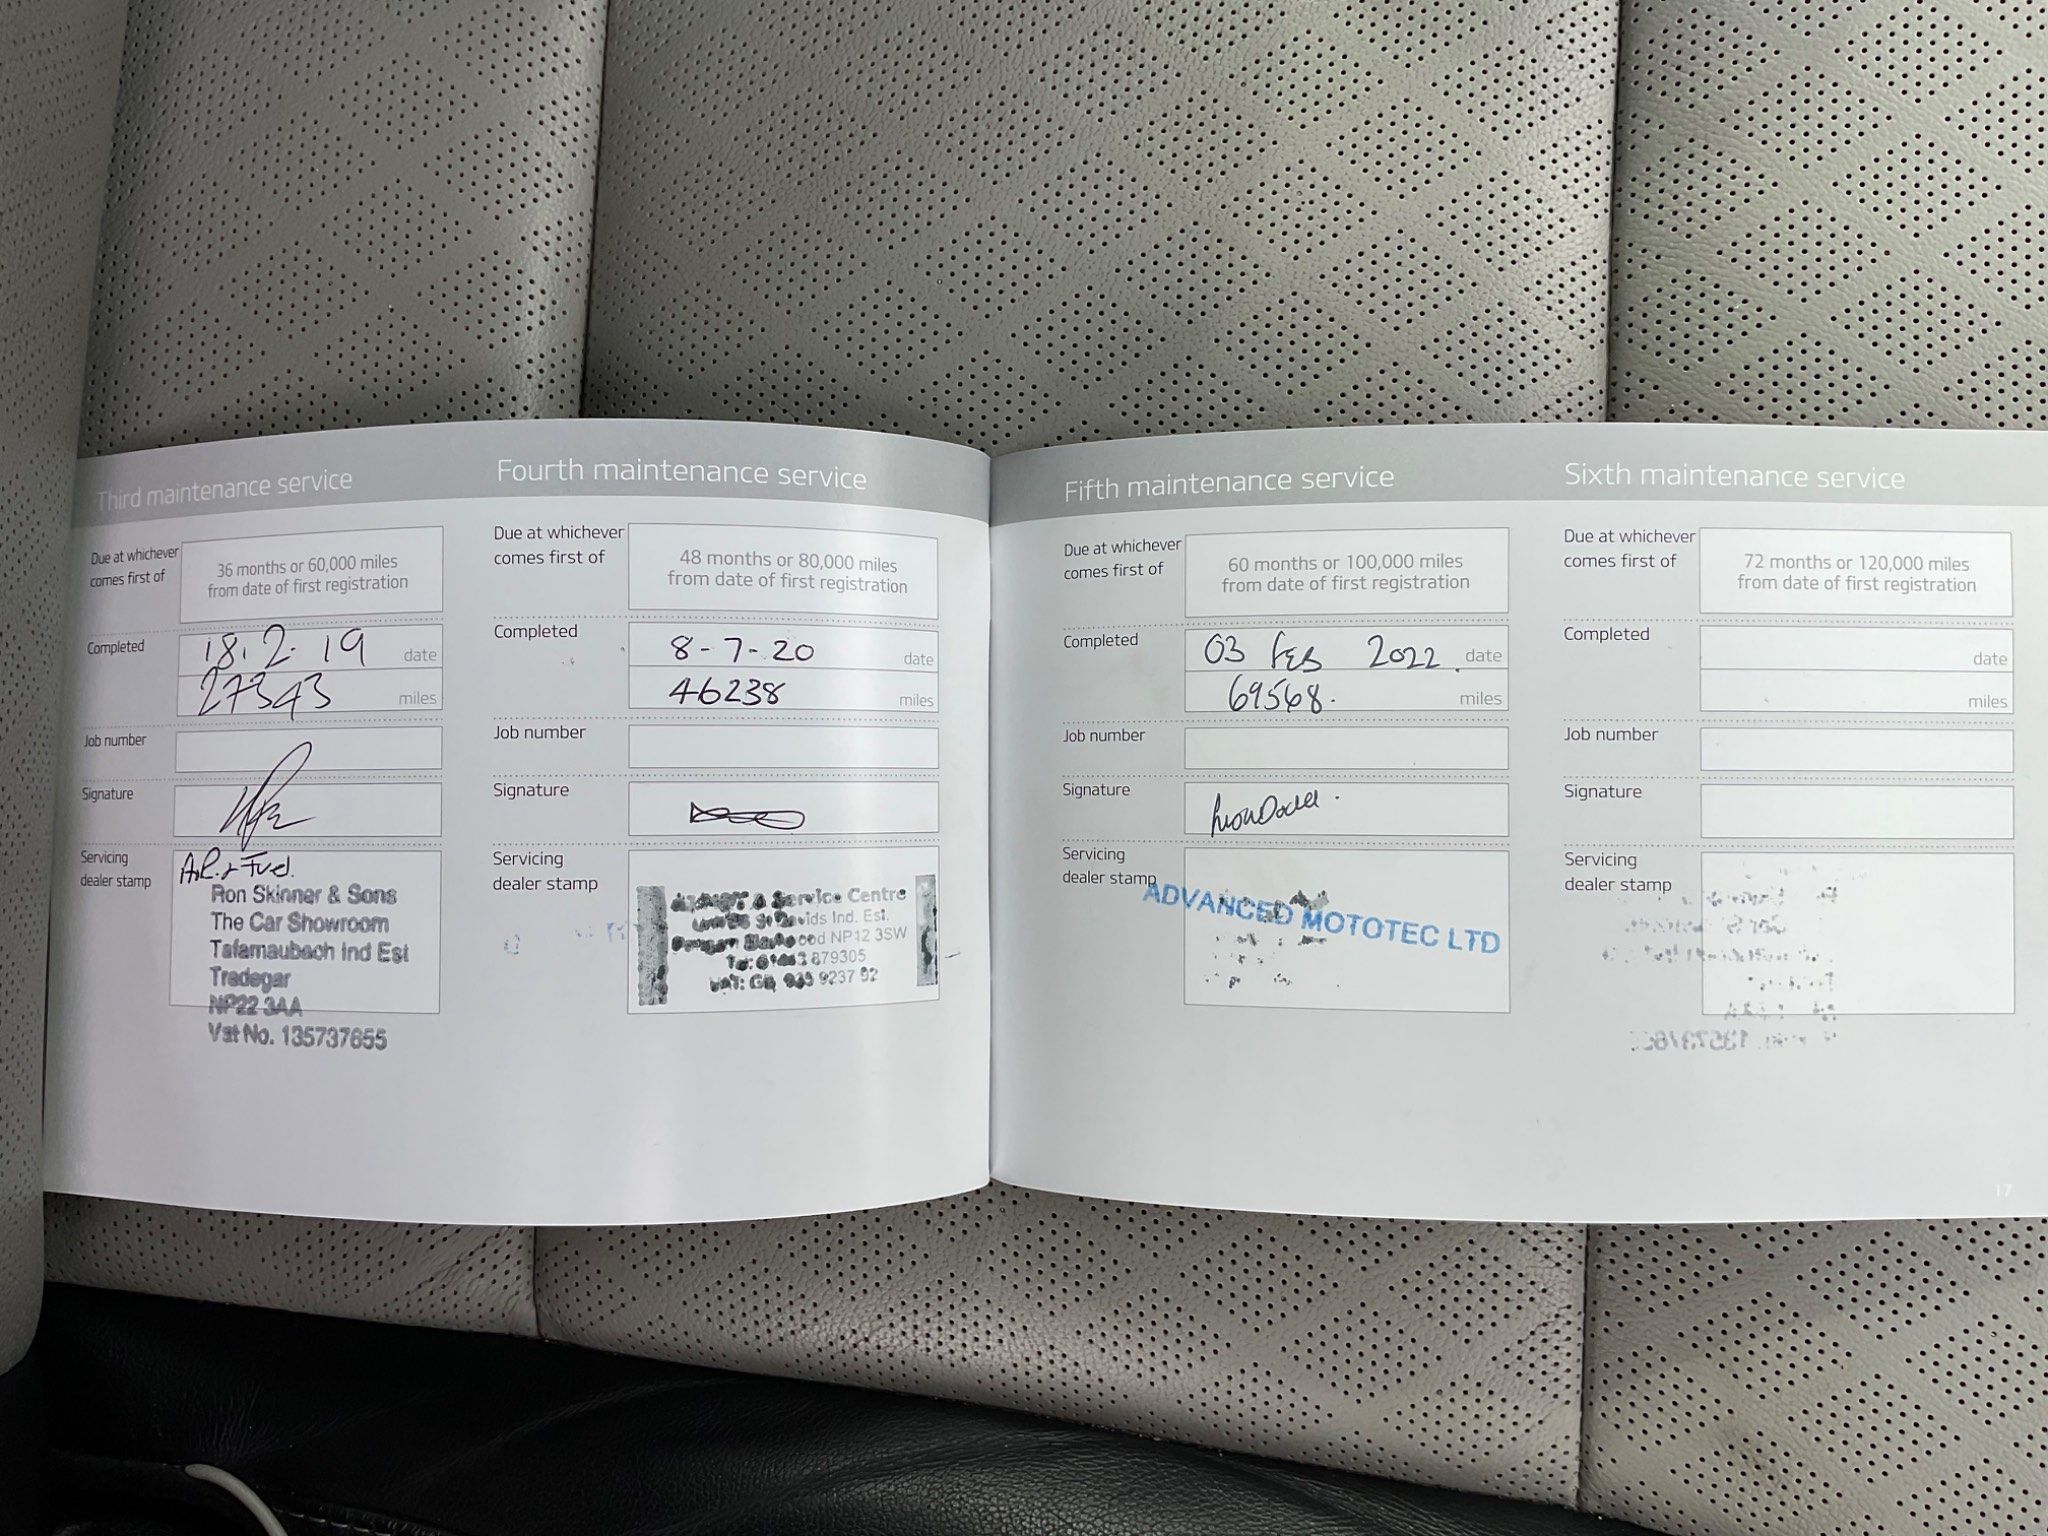 Third maintenance service
Due at whichever
comes first of
36 months or 60,000 miles
from date of first registration
Completed
18.2.19
date
27343
miles
Job number
Signature
Servicing
dealer stamp
& Fuel.
Ron Skinner & Sons
The Car Showroom
Tafarnaubach Ind Est
Tredegar
NP22 3AA
Vat No. 135737655
16
Fourth maintenance service
Due at whichever
comes first of
48 months or 80,000 miles
from date of first registration
Completed
8-7-20
date
46238
miles
Job number
Signature
Servicing
dealer stamp
Service Centre
Ind. Est.
NP12 3SW
879305
VAT: GB 9237 92
Fifth maintenance service
Due at whichever
comes first of
60 months or 100,000 miles
from date of first registration
Completed
03 FEB 2022.
date
69568.
miles
Job number
Signature
Servicing
dealer stamp
ADVANCED MOTOTEC LTD
Sixth maintenance service
Due at whichever
comes first of
72 months or 120,000 miles
from date of first registration
Completed
date
miles
Job number
Signature
Servicing
dealer stamp
17